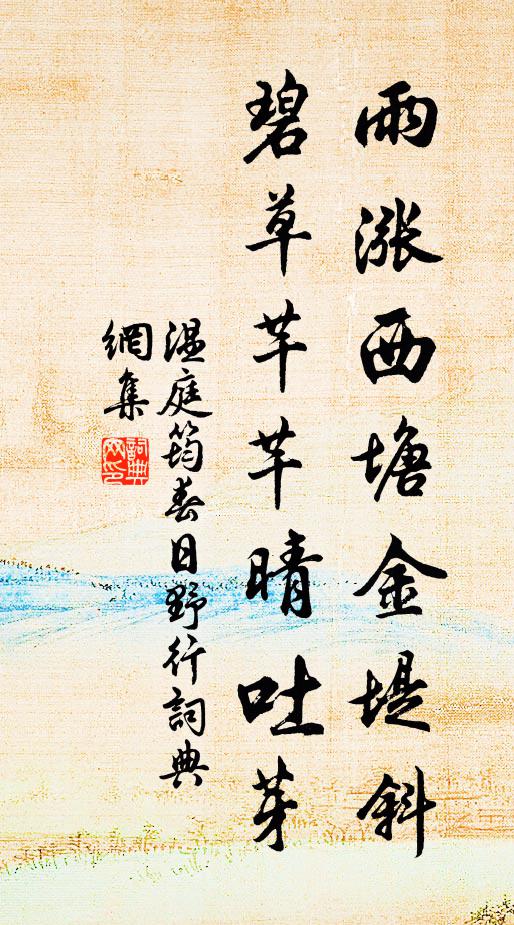 雨漲西塘金堤斜
碧草芊芊晴吐芽
温庭筠春日野行詞典
網集
詞典
网印